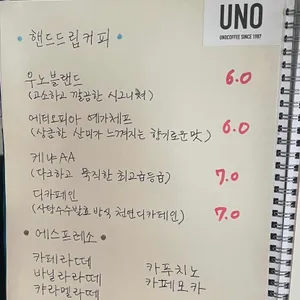 UNO
UNOCOFFEE SINCE 1987
• 핸드드립커피 •
우노블랜드 6.0
(고소하고 깔끔한 시그니처)
에티오피아 예가체프 6.0
(상큼한 산미가 느껴지는 향기로운 맛)
케냐AA 7.0
(다크하고 묵직한 최고급등급)
디카페인 7.0
(사탕수수발효 방식 천연디카페인)
• 에스프레소 •
카페라떼 카푸치노
바닐라라떼 카페모카
캬라멜라떼